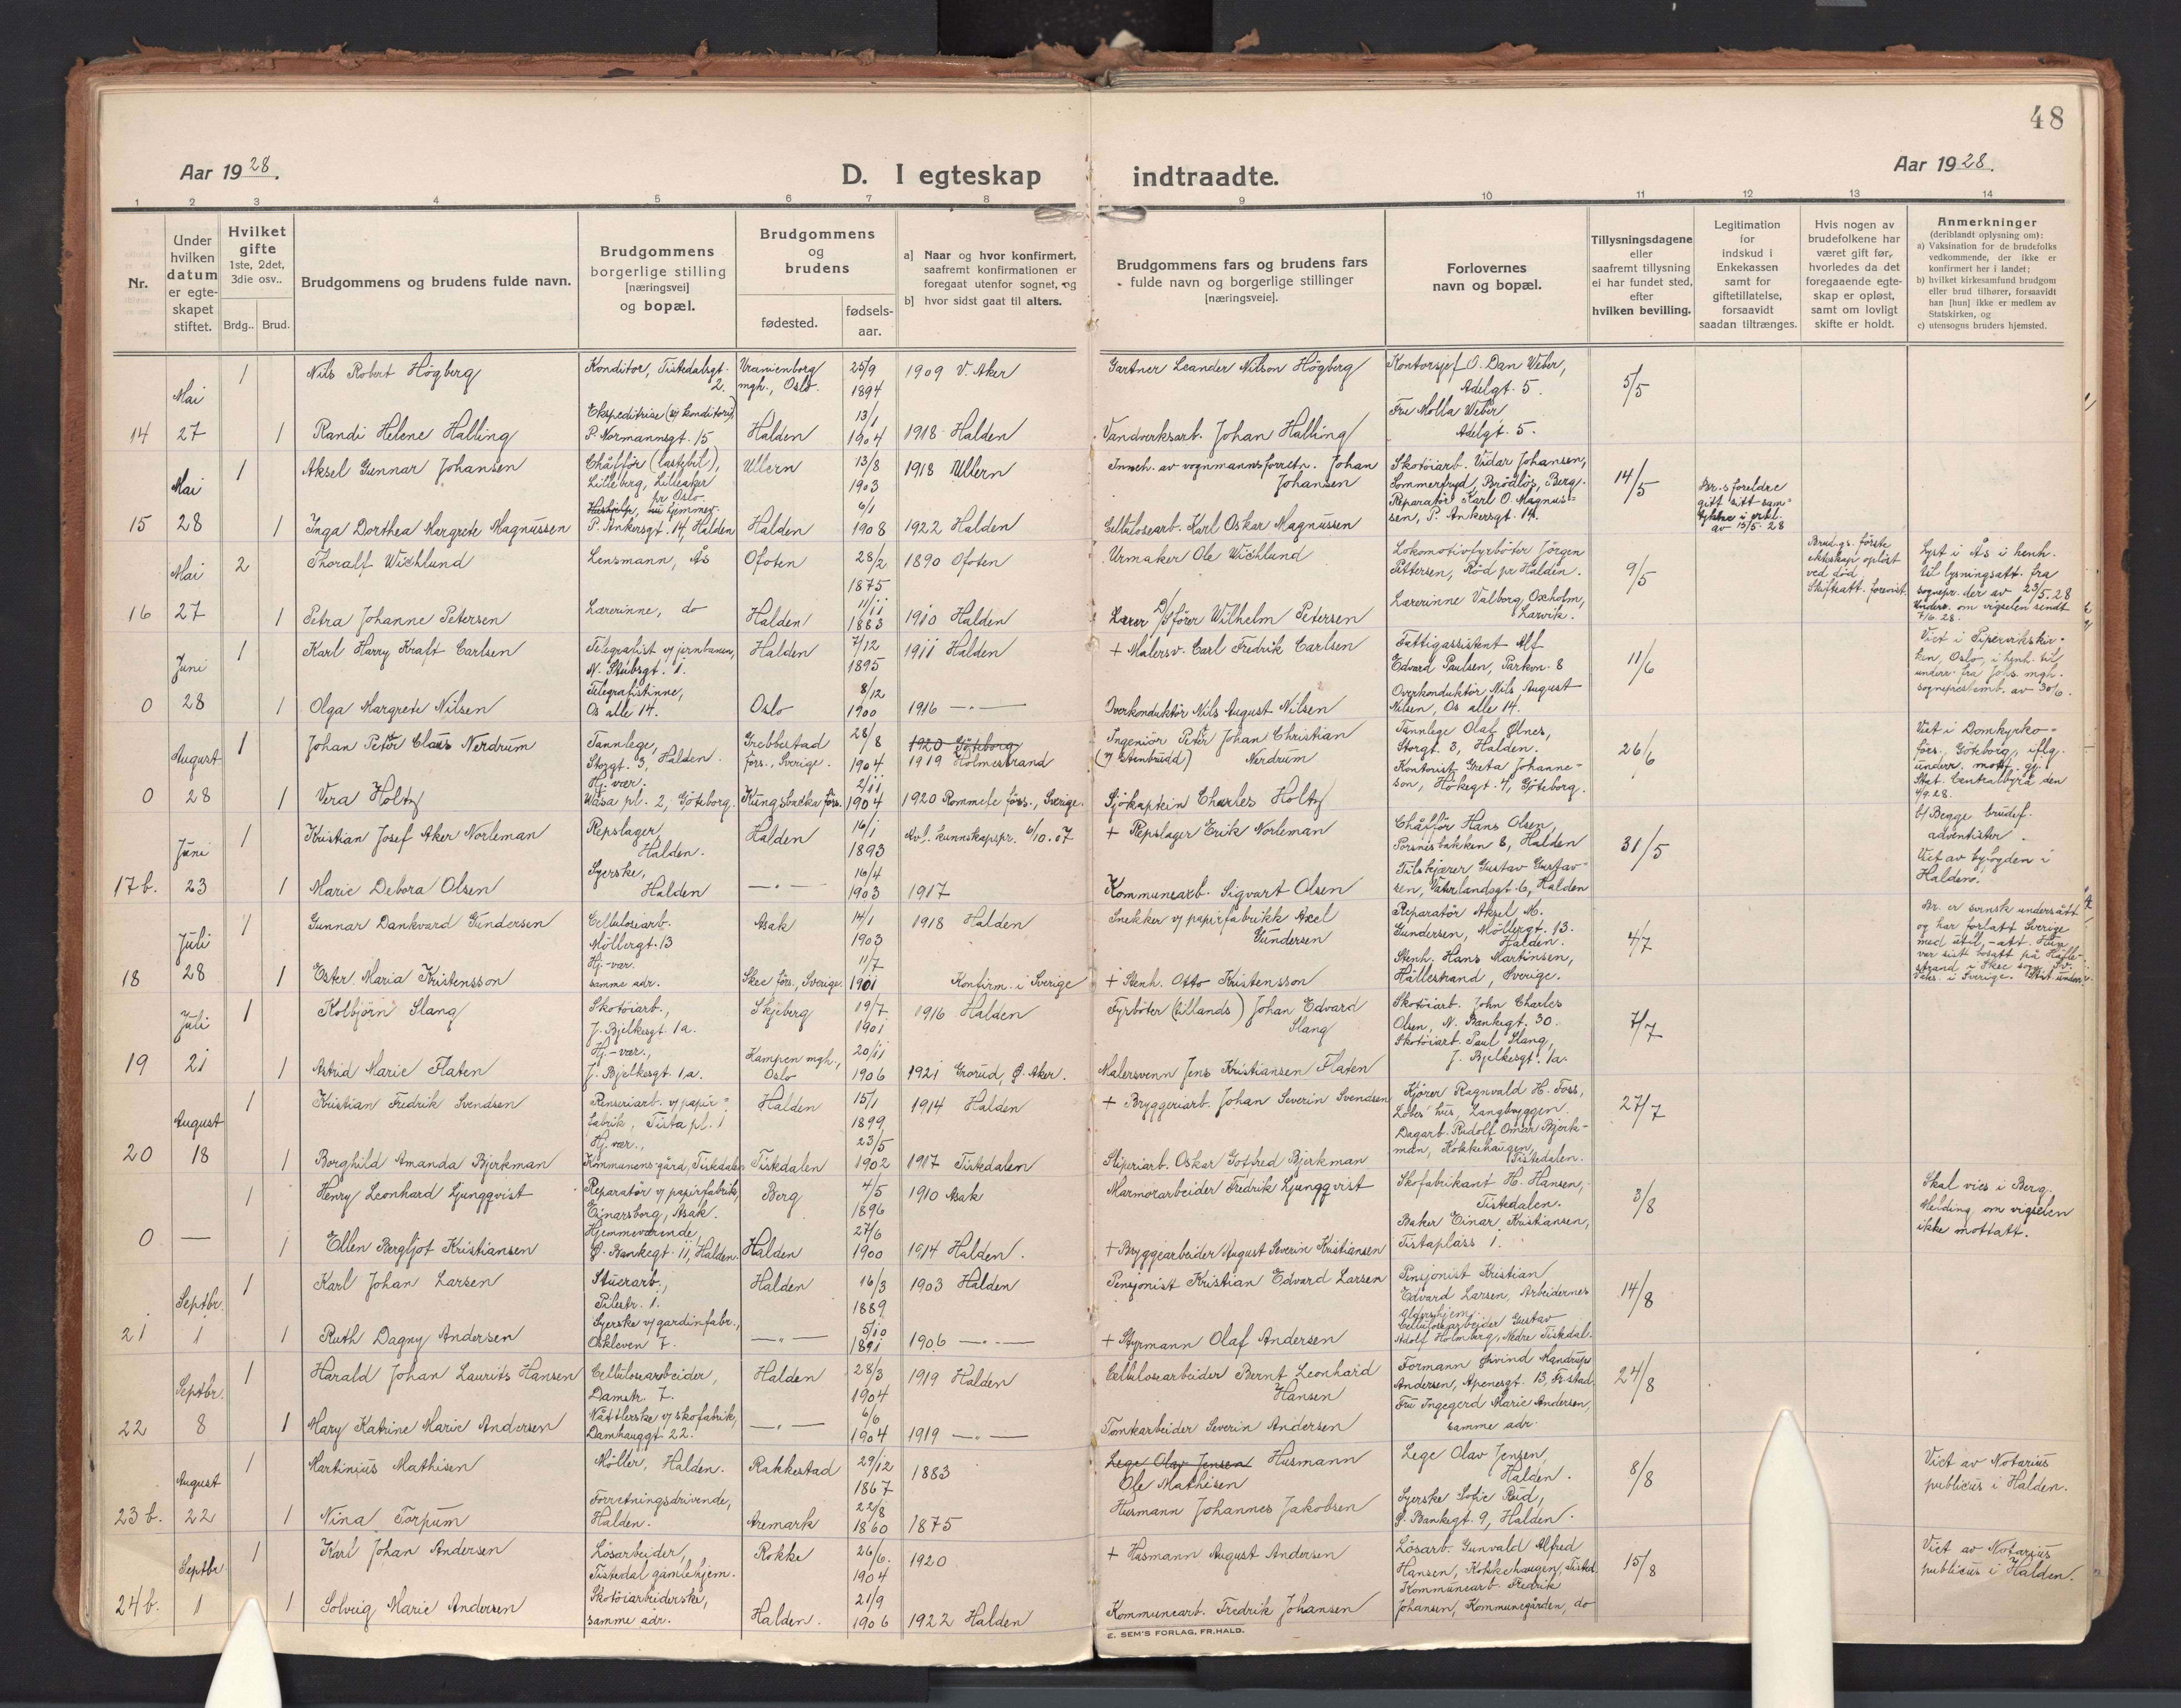 48
Aar 1928.
D. I egteskap indtraadte.
Aar 1928.
1 2 3 4 5 6 7 8 9 10 11 12 13 14
Nr.
Under hvilken datum er egteskapet stiftet.
Hvilket gifte 1ste, 2det, 3die osv..
Brdg.. Brud.
Brudgommens og brudens fulde navn.
Brudgommens borgerlige stilling [næringsvei] og bopæl.
Brudgommens og brudens
fødested.
fødselsaar.
a] Naar og hvor konfirmert, saafremt konfirmationen er foregaat utenfor sognet, og
b] hvor sidst gaat til alters.
Brudgommens fars og brudens fars fulde navn og borgerlige stillinger [næringsveie].
Forlovernes navn og bopæl.
Tillysningsdagene eller saafremt tillysning ei har fundet sted, efter hvilken bevilling.
Legitimation for indskud i Enkekassen samt for giftetillatelse, forsaavidt saadan tiltrænges.
Hvis nogen av brudefolkene har været gift før, hvorledes da det foregaaende egteskap er opløst, samt om lovligt skifte er holdt.
Anmerkninger (deriblandt oplysning om):
a) Vaksination for de brudefolks vedkommende, der ikke er konfirmert her i landet;
b) hvilket kirkesamfund brudgom eller brud tilhører, forsaavidt han [hun] ikke er medlem av Statskirken, og
c) utensogns bruders hjemsted.
1 Nils Robert Högberg Konditor, Tistedalsgt. 2. Uranienborg mgh., Oslo. 25/9 1894 1909 V. Aker Gartner Leander Nilson Högberg Kontorsjef O. Dan Weber, Adelgt. 5. 5/5
14 Mai 27 1 Randi Helene Halling Ekspeditrise (v/ konditori) P. Normannsgt. 15 Halden 13/1 1904 1918 Halden Vandverksarb. Johan Halling Fru Molla Weber Adelgt. 5.
1 Aksel Gunnar Johansen Chåfför (lastebil), Lilleberg, Lilleaker pr Oslo. Ullern 13/8 1903 1918 Ullern Inneh. av vognmannsforretn. Johan Johansen Skotöiarb. Vidar Johansen, Sommerfryd, Brödlös, Berg. 14/5 Br.s foreldre gitt sitt samtykke i erkl. av 15/5. 28
15 Mai 28 1 Inga Dorthea Margrete Magnussen Hushjelp, nu hjemmev. P. Ankersgt. 14, Halden Halden 6/1 1908 1922 Halden Cellulosearb. Karl Oskar Magnussen Reparatör Karl O. Magnussen, P. Ankersgt. 14.
2 Thoralf Wichlund Lensmann, Ås Ofoten 28/2 1875 1890 Ofoten Urmaker Ole Wichlund Lokomotivfyrböter Jörgen Pettersen, Röd pr Halden. 9/5 Brud.gs. förste ekteskap oplöst ved död. Skifteatt. forevist. Lyst i Ås i henh. til lysningsatt. fra sognepr. der av 23/5.28 Underr. om vigselen sendt 7/6 28.
16 Mai 27 1 Petra Johanne Petersen Lærerinne, do Halden 11/11 1883 1910 Halden Lærer D/S förer Wilhelm Petersen Lærerinne Valborg Oxholm, Larvik.
1 Karl Harry Kraft Carlsen Telegrafist v/ jernbanen, N. Stubsgt. 1. Halden 7/12 1895 1911 Halden + Malersv. Carl Fredrik Carlsen Fattigassistent Alf Edvard Paulsen, Parkvn. 8 11/6 Viet i Piperviks kirken, Oslo, i henh. til underr. fra Johs. mgh. sogneprestemb. av 30/6.
0 Juni 28 1 Olga Margrete Nilsen Telegrafistinne, Os alle 14. Oslo 8/12 1900 1916 —„— Overkonduktör Nils August Nilsen Overkonduktör Nils August Nilsen, Os alle 14.
1 Johan Peter Claus Nerdrum Tannlege, Storgt. 3, Halden. Grebbestad förs., Sverige. 28/8 1904 1920 Göteborg 1919 Holmestrand Ingeniör Peter Johan Christian (v/ Stenbrudd) Nerdrum Tannlege Olaf Ølnes, Storgt. 3, Halden. 26/6 Viet i Domkyrkoförs., Göteborg, iflg. underr. mott. gj. Stat. Centralbyrå den 4/9.28.
0 August 28 1 Vera Holtz Hj. vær. Wasa pl. 2, Göteborg. Kungsbacka förs. 2/11 1904 1920 Rommele förs., Sverige. Sjökaptein Charles Holtz Kontorist Greta Johanneson, Hökegt. 4, Göteborg.
1 Kristian Josef Aker Norleman Repslager, Halden. Halden 16/1 1893 Avl. kunnskapspr. 6/10.07 + Repslager Erik Norleman Chåfför Hans Olsen, Porsnesbakken 8, Halden 31/5 b/ Begge brudef. adventister. Viet av byfogden i Halden.
17b. Juni 23 1 Marie Debora Olsen Syerske, Halden —„— 16/4 1903 1917 Kommunearb. Sigvart Olsen Tilskjærer Gustav Gustavsen, Vaterlandsgt. 6, Halden
1 Gunnar Dankvard Gundersen Cellulosearb. Möllergt. 13 Asak 14/1 1903 1918 Halden Snekker v/ papirfabrikk Axel Gundersen Reparatör Aksel M. Gundersen, Möllergt. 13. Halden. 4/7 Br. er svensk undersått og har forlatt Sverige med util.-att. Hun var sist bosatt på Hälle-strand i Skee sogn, Sv.
18 Juli 28 1 Ester Maria Kristensson Hj.-vær. samme adr. Skee förs., Sverige 11/7 1901 Konfirm. i Sverige + Stenh. Otto Kristensson Stenh. Hans Martinsen, Hällestrand, Sverige.
1 Kolbjörn Slang Skotöiarb., J. Bjelkesgt. 1a. Skjeberg 19/7 1901 1916 Halden Fyrböter (tillands) Johan Edvard Slang Skotöiarb. John Charles Olsen, N. Bankegt. 30. 7/7
19 Juli 21 1 Astrid Marie Flaten Hj.-vær., J. Bjelkesgt. 1a. Kampen mgh., Oslo 20/11 1906 1921 Grorud, Ø. Aker. Malersvenn Jens Kristiansen Flaten Skotöiarb. Paul Slang, J. Bjelkesgt. 1a.
1 Kristian Fredrik Svendsen Renseriarb. v/ papirfabrik, Tista pl. 1 Halden 15/1 1899 1914 Halden + Bryggeriarb. Johan Severin Svendsen Kjörer Ragnvald H. Foss, Löbes hus, Langbryggen. 27/7
20 August 18 1 Borghild Amanda Bjerkman Hj. vær., Kommunens gård, Tistedalen Tistedalen 23/5 1902 1917 Tistedalen Sliperiarb. Oskar Gotfred Bjerkman Dagarb. Rudolf Omar Bjerkman, Kokkehaugen, Tistedalen.
1 Henry Leonhard Ljungqvist Reparatör v/ papirfabrik, Einarsborg, Asak. Berg 4/5 1896 1910 Asak Marmorarbeider Fredrik Ljungqvist Skofabrikant H. Hansen, Tistedalen. 3/8 Skal vies i Berg. Melding om vigselen ikke mottatt.
0 — 1 Ellen Bergljot Kristiansen Hjemmeværende, Ø. Bankegt. 11, Halden. Halden 27/6 1900 1914 Halden. + Bryggearbeider August Severin Kristiansen Baker Einar Kristiansen, Tistaplass 1.
1 Karl Johan Larsen Stuerarb., Pilestr. 1. Halden 16/3 1889 1903 Halden Pensjonist Kristian Edvard Larsen Pensjonist Kristian Edvard Larsen, Arbeidernes Aldershjem. 14/8
21 Septbr. 1 1 Ruth Dagny Andersen Syerske v/ gardinfabr., Oskleven 7. —„— 5/10 1891 1906 —„— + Styrmann Olaf Andersen Cellulosearbeider Gustav Adolf Holmberg, Nedre Tistedal.
1 Harald Johan Laurits Hansen Cellulosearbeider, Damstr. 7. Halden 28/3 1904 1919 Halden Cellulosearbeider Bernt Leonhard Hansen Formann Øivind Mandrup Andersen, Apenesgt. 13, Fr.stad 24/8
22 Septbr. 8 1 Mary Katrine Marie Andersen Nåtlerske v/ skofabrik, Damhauggt. 22. —„— 6/6 1904 1919 —„— Tomtearbeider Severin Andersen Fru Ingegerd Marie Andersen, samme adr.
1 Martinius Mathisen Möller, Halden. Rakkestad 29/12 1867 1883 Lege Olav Jensen Husmann Ole Mathisen Lege Olav Jensen, Halden. 8/8 Viet av Notarius publicus i Halden.
23b. August 22 1 Nina Torpum Forretningsdrivende, Halden. Aremark 22/8 1860 1875 Husmann Johannes Jakobsen Syerske Sofie Rud, Ø. Bankegt. 9, Halden.
1 Karl Johan Andersen Lösarbeider, Tistedal gamlehjem. Rokke 26/6. 1904 1920 + Husmann August Andersen Lösarb. Gunvald Alfred Hansen, Kokkehaugen, Tisted. 15/8 Viet av Notarius publicus i Halden.
24b. Septbr 1 1 Solveig Marie Andersen Skotöiarbeiderske, samme adr. Halden. 21/9 1906 1922 Halden Kommunearb. Fredrik Johansen Kommunearb. Fredrik Johansen, Kommunegården, do
E. SEM'S FORLAG, FR.HALD.